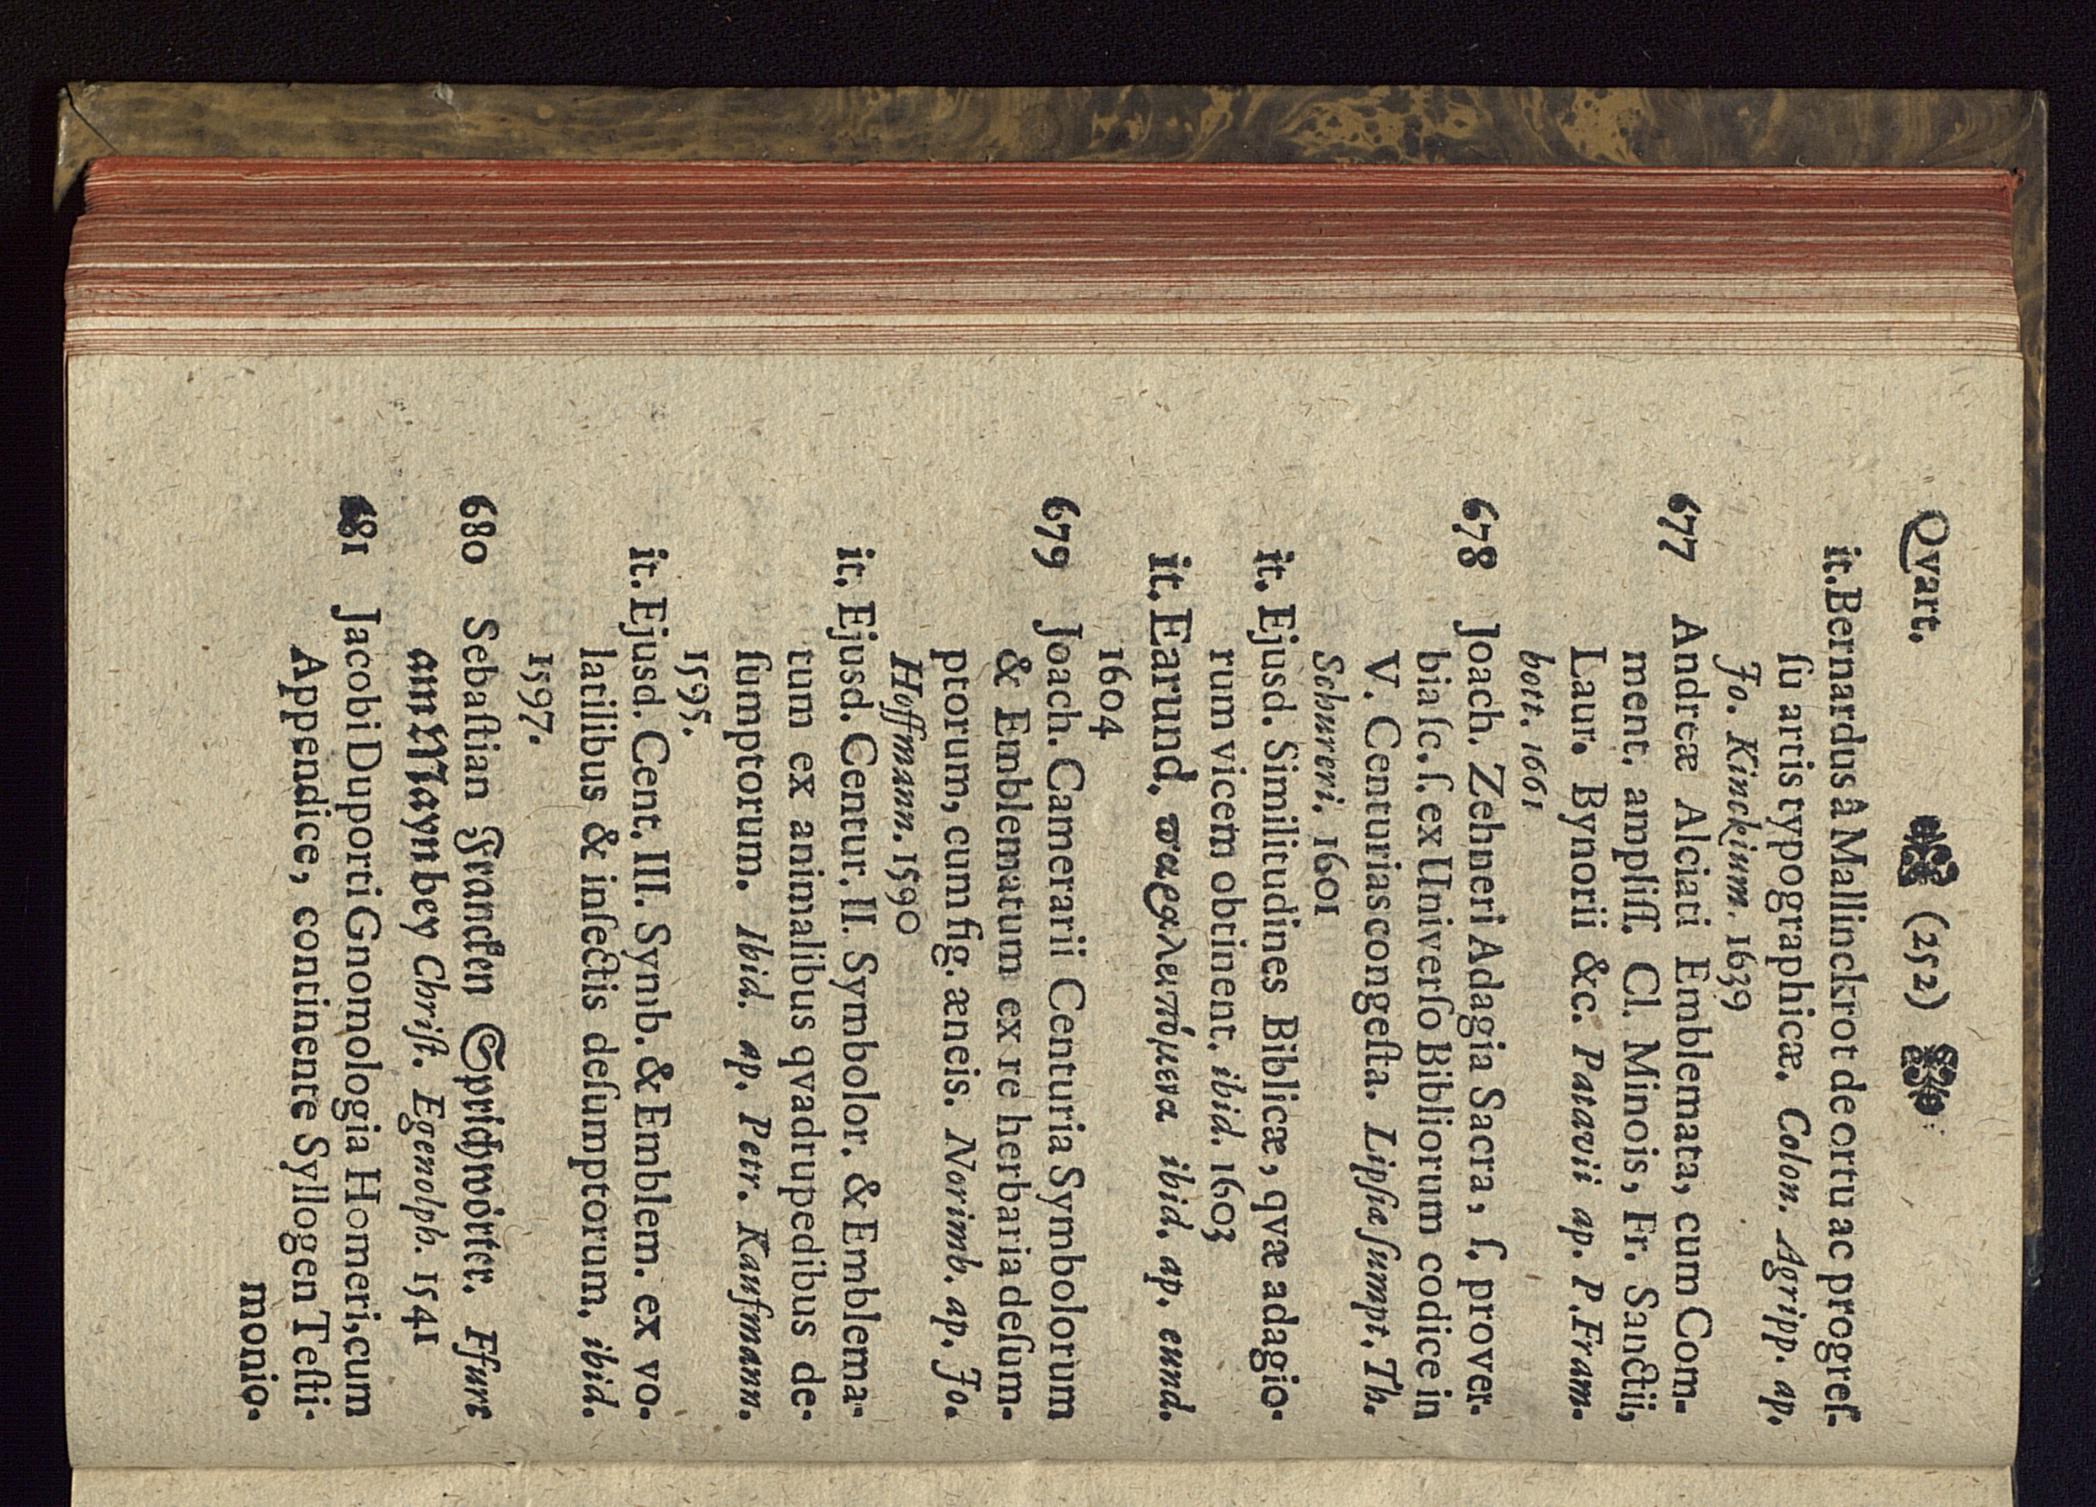 Qvart. (252)
it. Bernardus â Mallinckrot de ortu ac progreſ-
ſu artis typographicæ. Colon. Agripp. ap.
Jo. Kinckium. 1639
677 Andreæ Alciati Emblemata, cum Com-
ment. ampliſſ. Cl. Minois, Fr. Sanctii,
Laur. Bynorii &c. Patavii ap. P. Fram-
bott. 1661
678 Joach. Zehneri Adagia Sacra, ſ. prover-
bia ſc. ſ. ex Univerſo Bibliorum codice in
V. Centurias congeſta. Lipſiæ ſumpt. Th.
Schureri. 1601
it. Ejusd. Similitudines Biblicæ, qvæ adagio-
rum vicem obtinent. ibid. 1603
it. Earund. παραλειπόμενα ibid. ap. eund.
1604
679 Joach. Camerarii Centuria Symbolorum
& Emblematum ex re herbaria deſum-
ptorum, cum fig. æneis. Norimb. ap. Jo.
Hoffmann. 1590
it. Ejusd. Centur. II. Symbolor. & Emblema-
tum ex animalibus qvadrupedibus de-
ſumptorum. Ibid. ap. Petr. Kaufmann.
1595.
it. Ejusd. Cent. III. Symb. & Emblem. ex vo-
latilibus & inſectis deſumptorum, ibid.
1597.
680 Sebaſtian Francken Sprichwörter. Ffurt
am Mayn bey Chriſt. Egenolph. 1541
681 Jacobi Duporti Gnomologia Homeri, cum
Appendice, continente Syllogen Teſti-
monio-